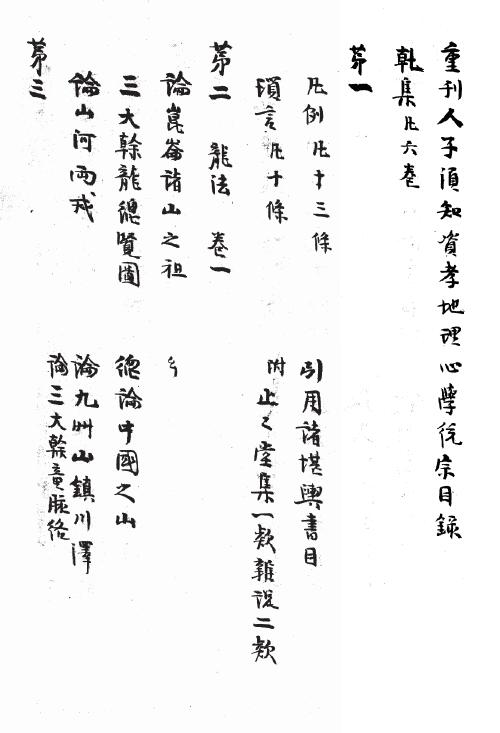 重刊人子須知資孝地理心學統宗目錄
乾集凡六卷
第一
凡例凡十三條
引用諸堪輿書目
瑣言凡十條
附止止堂集一款雜說二款
第二 龍法 卷一
論崑崙諸山之祖
三大幹龍總覽圖
總論中國之山
論山河兩戒
論九州山鎮川澤
論三大幹
脉絡
第三